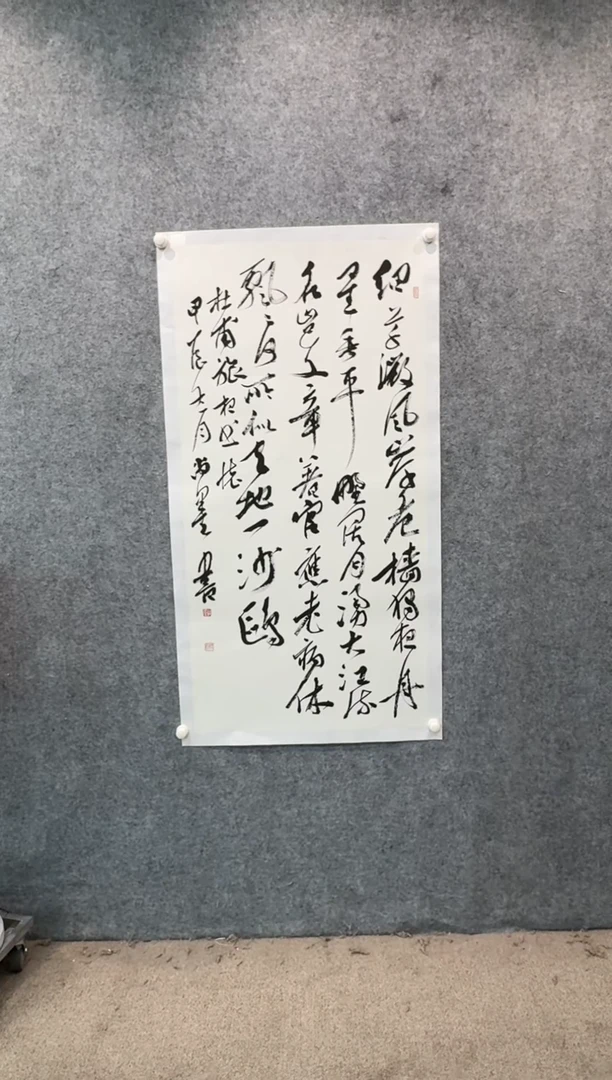 细草微风岸危樯独夜舟
星垂平野阔月涌大江流
名岂文章著官应老病休
飘々何所似天地一沙鸥
杜甫旅夜书怀
甲辰六月墨書